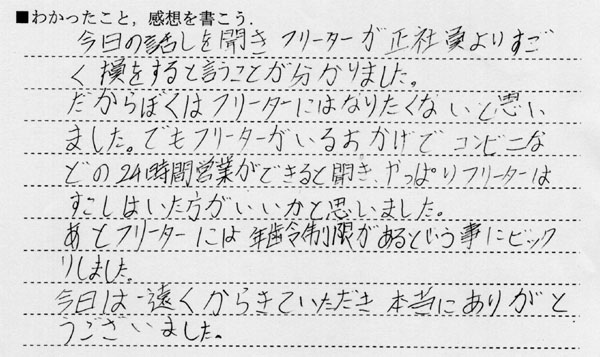 ■わかったこと，感想を書こう.
今日の話しを聞きフリーターが正社員よりすご
く損をすると言うことが分かりました。
だからぼくはフリーターにはなりたくないと思い
ました。でもフリーターがいるおかげでコンビニな
どの24時間営業ができると聞き、やっぱりフリーターは
すこしはいた方がいいかと思いました。
あとフリーターには年齢制限があるという事にビック
リしました。
今日は遠くからきていただき本当にありがと
うございました。